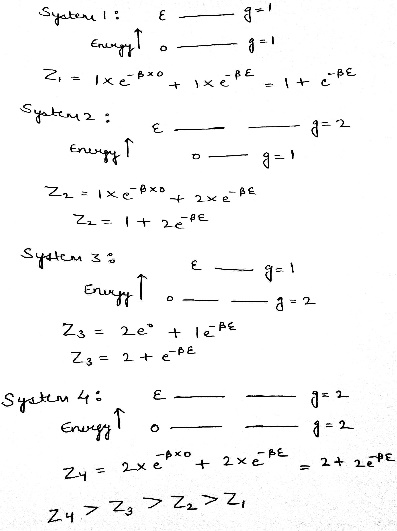 System 1 : ε — g=1
Energy ↑ 0 — g=1
Z₁ = 1xe^-βx0 + 1xe^-βε = 1 + e^-βε
System 2 : ε — — g=2
Energy ↑ 0 — g=1
Z₂ = 1xe^-βx0 + 2xe^-βε
Z₂ = 1 + 2e^-βε
System 3 : ε — g=1
Energy ↑ 0 — — g=2
Z₃ = 2e⁰ + 1e^-βε
Z₃ = 2 + e^-βε
System 4 : ε — — g=2
Energy ↑ 0 — — g=2
Z₄ = 2xe^-βx0 + 2xe^-βε = 2 + 2e^-βε
Z₄ > Z₃ > Z₂ > Z₁